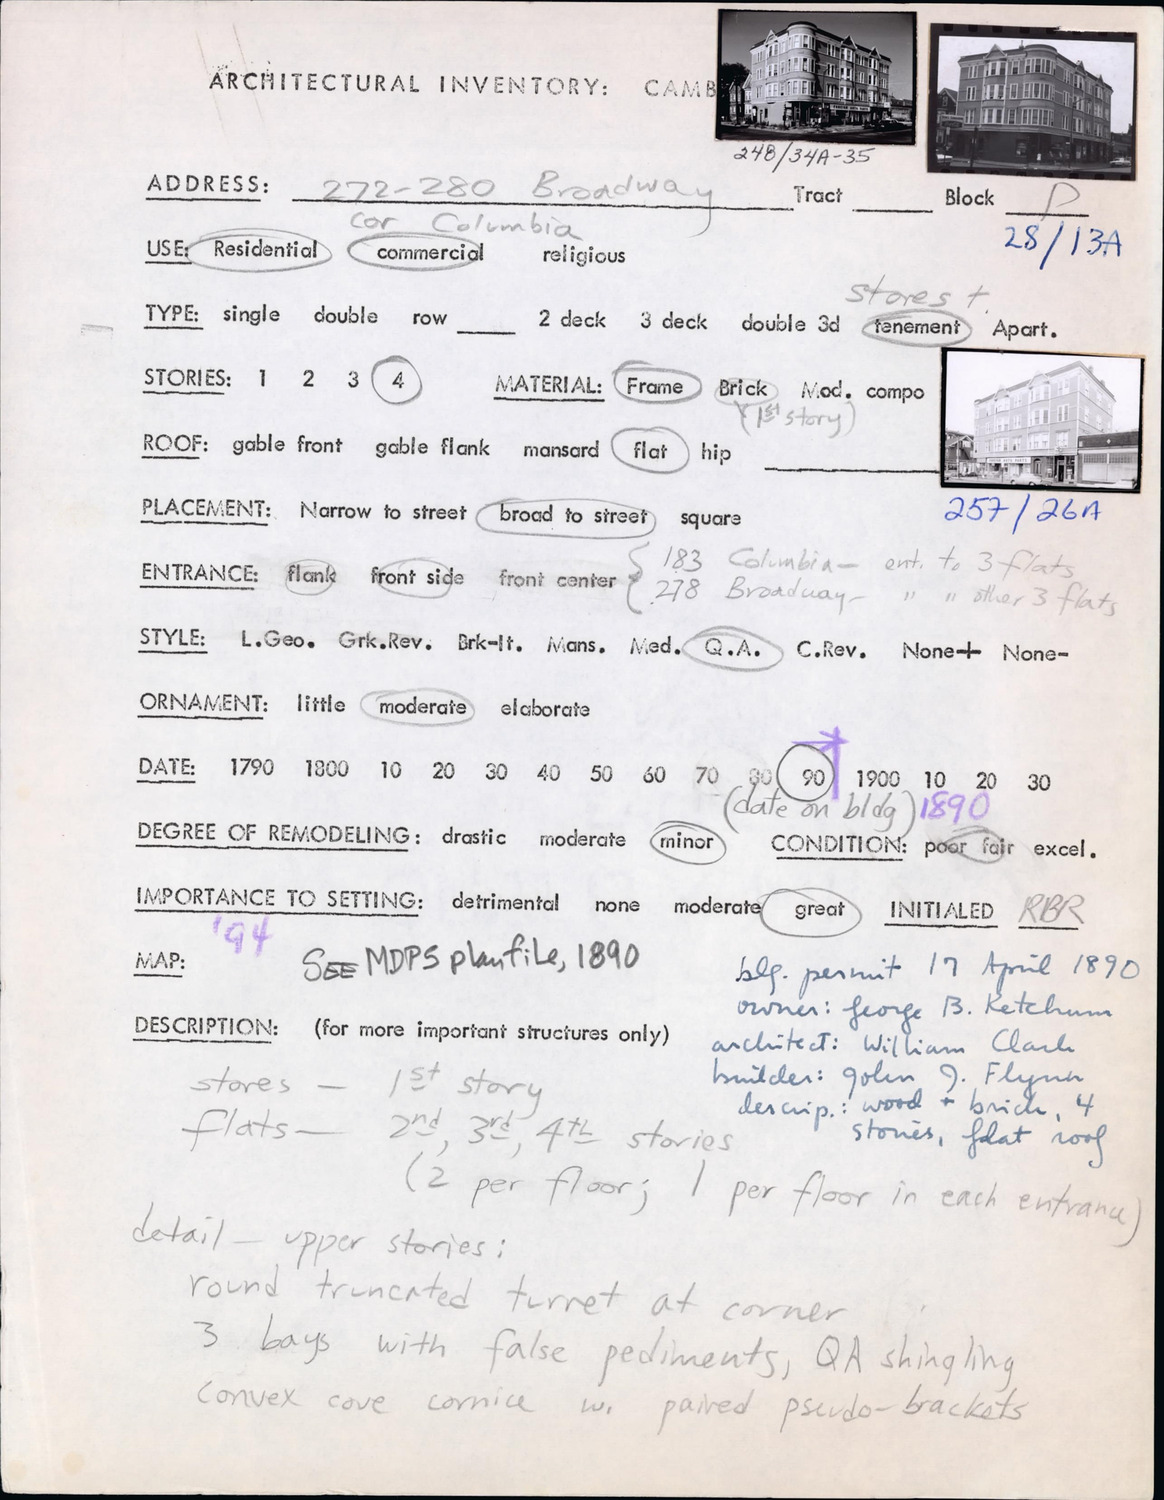 ARCHITECTURAL INVENTORY: CAMB
248/34A-35
ADDRESS: 272-280 Broadway Tract Block D
cor Columbia
28/13A
USE: Residential commercial religious
stores +
TYPE: single double row 2 deck 3 deck double 3d tenement Apart.
STORIES: 1 2 3 4 MATERIAL: Frame Brick Mod. compo
(1st story)
ROOF: gable front gable flank mansard flat hip
257/26A
PLACEMENT: Narrow to street broad to street square
ENTRANCE: flank front side front center
183 Columbia — ent. to 3 flats
278 Broadway — " " other 3 flats
STYLE: L.Geo. Grk.Rev. Brk-It. Mans. Med. Q.A. C.Rev. None+ None-
ORNAMENT: little moderate elaborate
DATE: 1790 1800 10 20 30 40 50 60 70 80 90 1900 10 20 30
(date on bldg) 1890
DEGREE OF REMODELING: drastic moderate minor CONDITION: poor fair excel.
IMPORTANCE TO SETTING: detrimental none moderate great INITIALED RBR
'94
MAP: SEE MDPS planfile, 1890
blg. permit 17 April 1890
owner: George B. Ketchum
architect: William Clark
builder: John J. Flynn
descrip.: wood + brick, 4
stories, flat roof
DESCRIPTION: (for more important structures only)
stores — 1st story
flats — 2nd, 3rd, 4th stories
(2 per floor; 1 per floor in each entrance)
detail — upper stories:
round truncated turret at corner
3 bays with false pediments, QA shingling
convex cove cornice w. paired pseudo-brackets